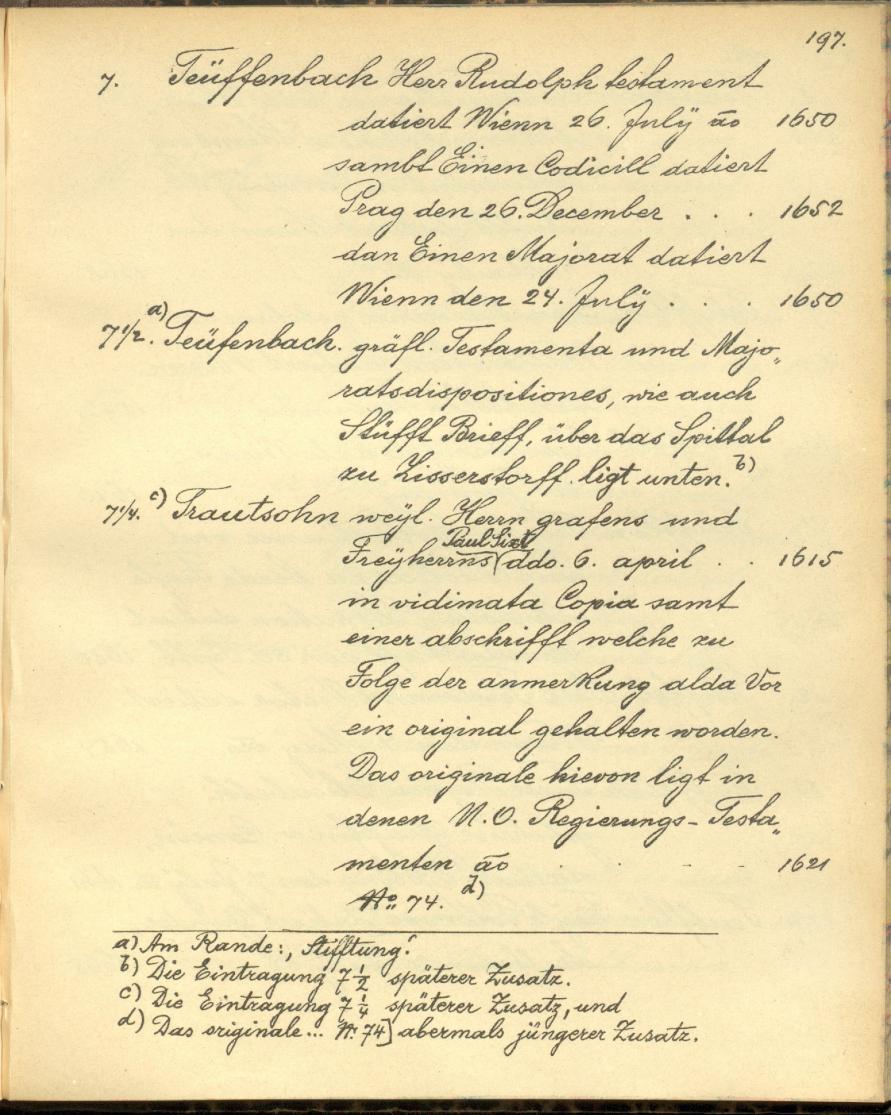 197.
7. Teüffenbach Herr Rudolph testament
datiert Wienn 26. Julÿ ão 1650
sambt Einen Codicill datiert
Prag den 26. December . . . 1652
dan Einen Majorat datiert
Wienn den 24. Julÿ . . . 1650
7 1/2. a) Teüfenbach. gräfl. Testamenta und Majo„
ratsdispositiones, wie auch
Stüfft Brieff, über das Spittal
zu Zisserstorff. ligt unten. b)
7 1/4. c) Trautsohn weÿl. Herrn grafens und
Paul Sixt
Freÿherrns ( ddo. 6. april . . 1615
in vidimata Copia samt
einer abschrifft welche zu
Folge der anmerkung alda Vor
ein original gehalten worden.
Das originale hievon ligt in
denen N.O. Regierungs-Testa„
menten ão . . - - 1621
No. 74. d)
a) Am Rande: ‚Stifftung‘.
b) Die Eintragung 7 1/2 späterer Zusatz.
c) Die Eintragung 7 1/4 späterer Zusatz, und
d) Das originale... Nr. 74] abermals jüngerer Zusatz.